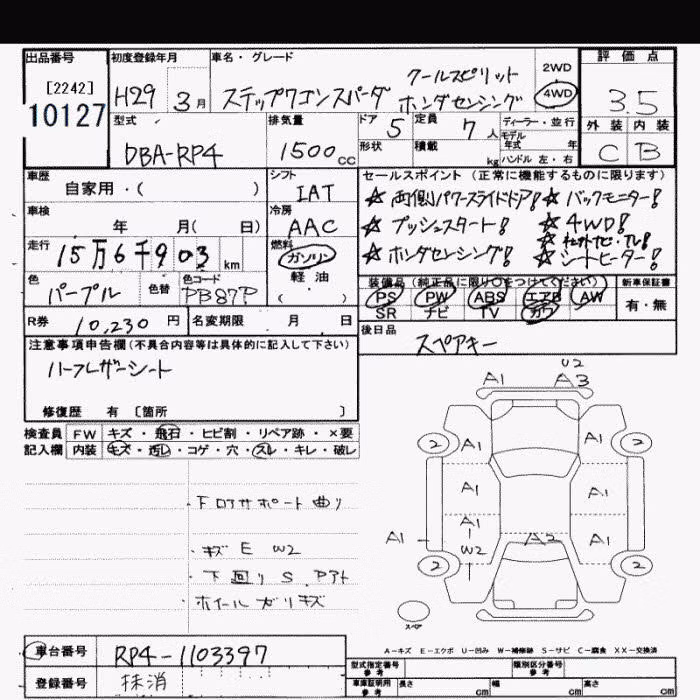 出品番号 初度登録年月 車名・グレード 評価点
[2242]
10127
H29 3月 ステップワゴンスパーダ クールスピリット ホンダセンシング 2WD 4WD 3.5
型式 排気量 ドア 5 定員 7人 ディーラー・並行 外装 内装
モデル年式 年
DBA-RP4 1500cc 形状 積載 kg ハンドル 左・右 C B
車歴 シフト セールスポイント (正常に機能するものに限ります)
自家用・( ) IAT ☆両側パワースライドドア! ☆バックモニター!
車検 冷房 ☆プッシュスタート! ☆4WD!
年 月( 日) AAC ☆社外ナビ・TV!
走行 15万6千903km 燃料 ガソリン ☆ホンダセンシング! ☆シートヒーター!
軽油
( ・ )
色 パープル 色替 色コード PB87P
装備品 (純正品に限り○をつけてください) 新車保証書
PS PW ABS エアB AW 有・無
SR ナビ TV カワ
R券 10,230円 名変期限 月 日
後日品 スペアキー
注意事項申告欄(不具合内容等は具体的に記入して下さい)
ハーフレザーシート
修復歴 有 〔箇所 〕
検査員 FW キズ・飛石・ヒビ割・リペア跡・×要
記入欄 内装 キズ・汚レ・コゲ・穴・スレ・キレ・破レ
・下ロアサポート曲り
・キズ E W2
・下回り S Pアト
・ホイールガリキズ
U2
A1 A3
2 A1 A1 2
A1 A1
A1 A1 A2 A1
W2
2 2
スペア
A-キズ E-エクボ U-凹み W-補修跡 S-サビ C-腐食 XX-交換済
車台番号 RP4-1103397
登録番号 抹消
型式指定番号 参考 類別区分番号 参考
車庫証明用 参考 長さ cm 幅 cm 高さ cm